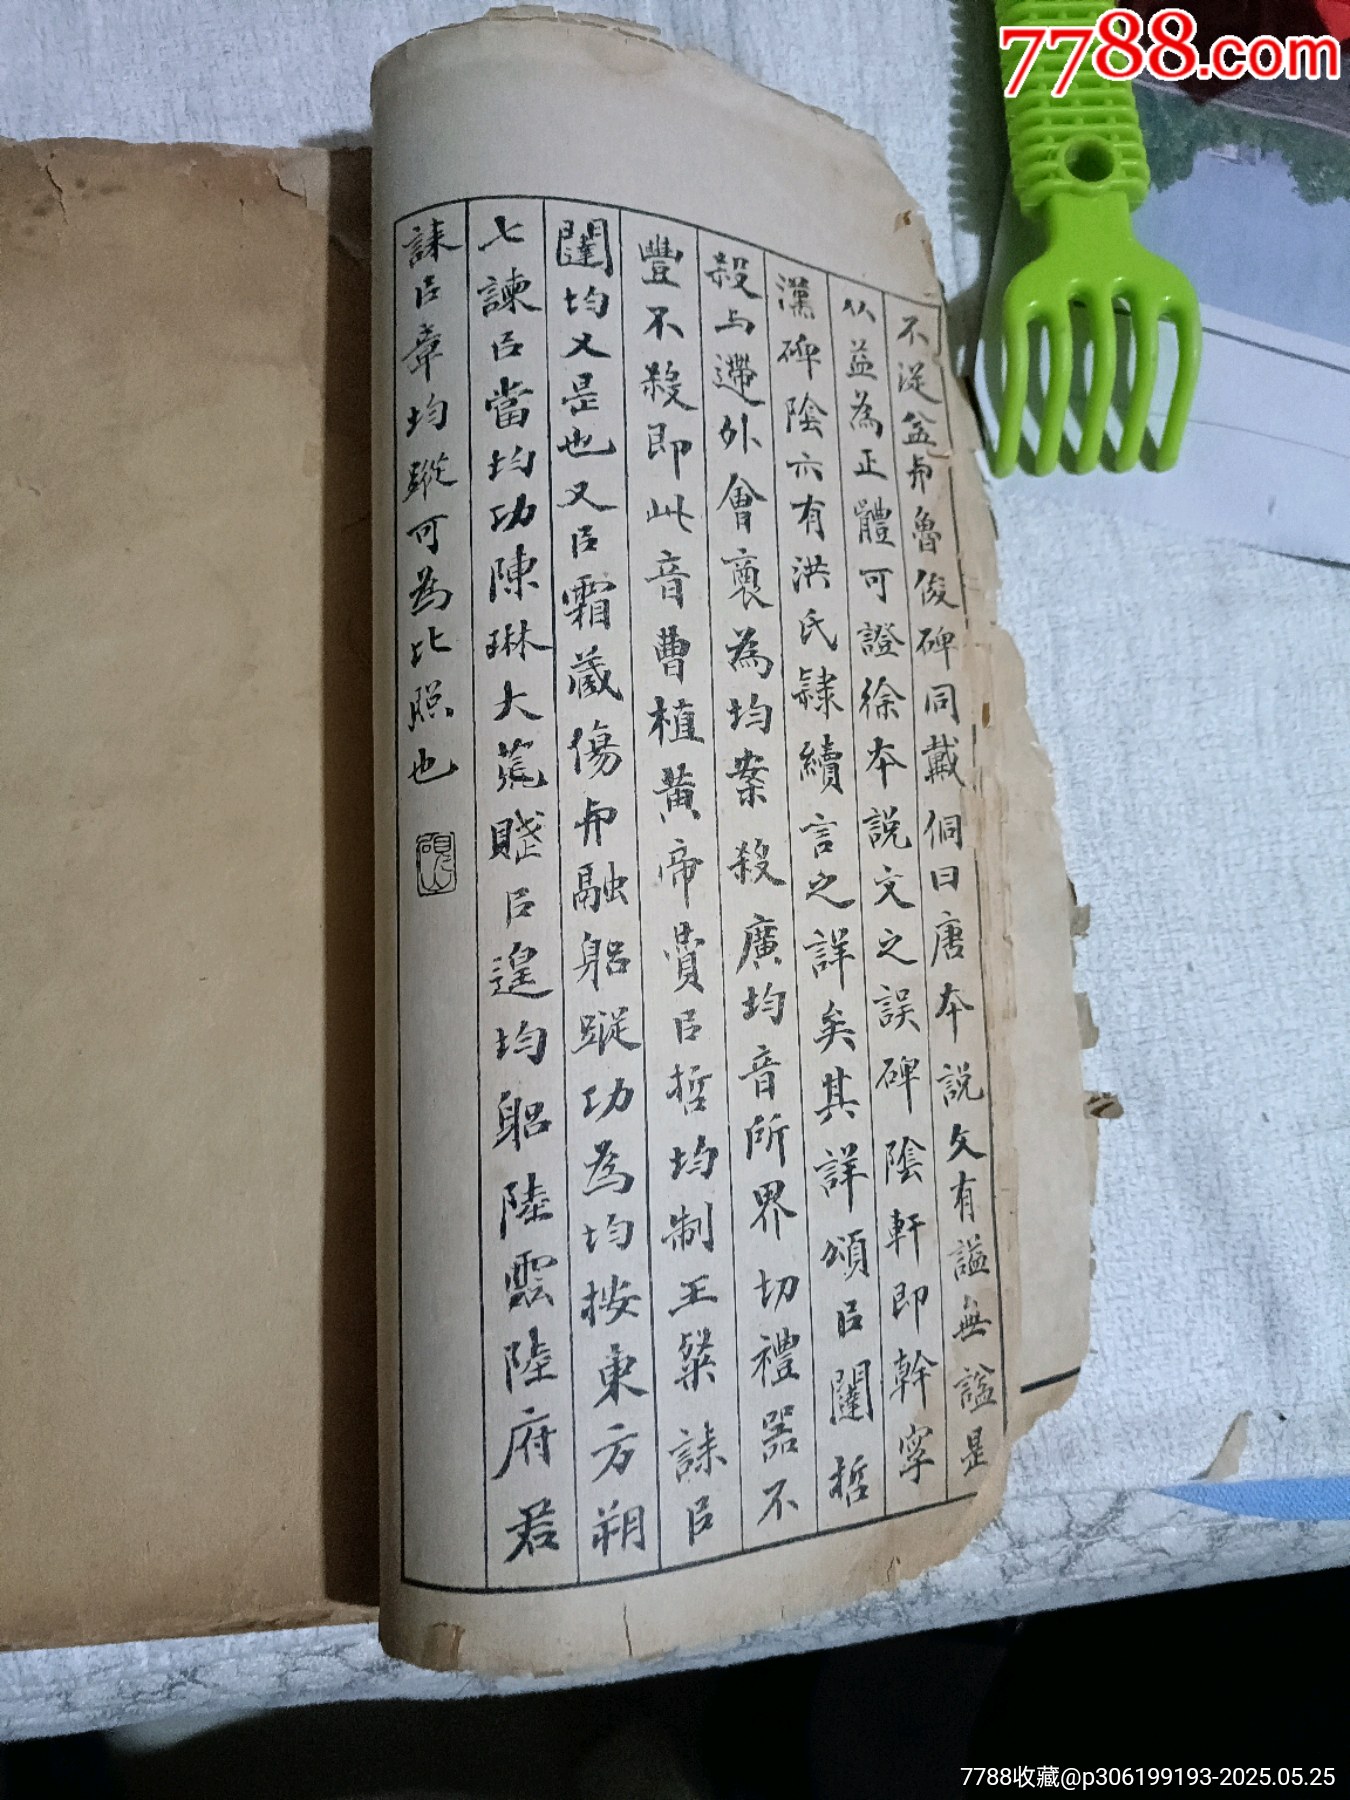 不从盆与魯俊碑同戴侗曰唐本說文有謚無諡是
从益為正體可證徐本說文之誤碑陰軒即幹寧
漢碑陰六有洪氏隸續言之詳矣其詳頌㠯闥哲
殺与遰外會裔為均案殺廣均音所界切禮器不
豐不殺即此音曹植黃帝贊㠯哲均制王粲誄㠯
闥均又是也又㠯霜蔵傷与融躳蹤功為均按東方朔
七諫㠯當均功陳琳大荒賦㠯遑均躳陸雲陸府君
誄㠯章均蹤可為比照也
硯山
7788.com
7788收藏@p306199193-2025.05.25